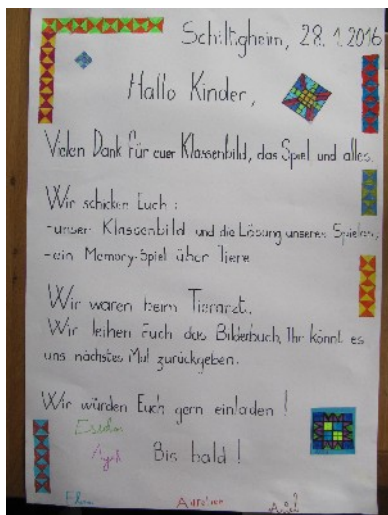 Schiltigheim, 28.1.2016
Hallo Kinder,
Vielen Dank für euer Klassenbild, das Spiel und alles.
Wir schicken Euch :
-unser Klassenbild und die Lösung unseres Spieles,
-ein Memory-Spiel über Tiere
Wir waren beim Tierarzt.
Wir leihen Euch das Bilderbuch. Ihr könnt es
uns nächstes Mal zurückgeben.
Wir würden Euch gern einladen !
Bis bald !